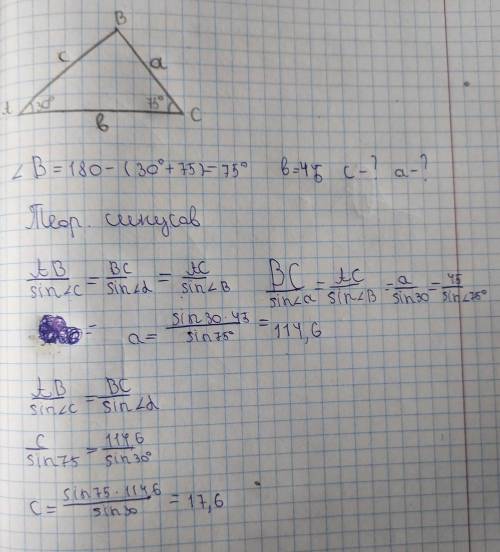 B
c a
A 30° 75° C
в
∠B=180-(30°+75)=75° в=4,5 c-? a-?
Теор. синусов
AB/sin∠C = BC/sin∠α = AC/sin∠B
BC/sin∠a = AC/sin∠B = a/sin30 = 45/sin∠75°
= a= sin30·43/sin75° = 114,6
AB/sin∠C = BC/sin∠α
c/sin75 = 114,6/sin30°
C= sin75·114,6/sin30 = 17,6